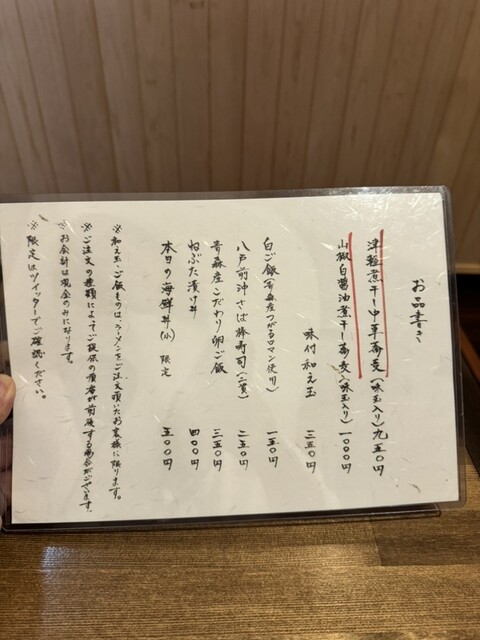 お品書き
津軽煮干し中華蕎麦(味玉入り)九五〇円
山椒白醤油煮干し蕎麦(味玉入り)一〇〇〇円
味付和え玉 三五〇円
白ご飯(青森産つがるロマン使用)一五〇円
八戸前沖さば棒寿司(二貫)二五〇円
青森産こだわり卵ご飯 三五〇円
ねぶた漬け丼 四〇〇円
本日の海鮮丼(小)限定 五〇〇円
※和え玉・ご飯ものは、ラーメンをご注文頂いたお客様に限ります。
※ご注文の種類によってご提供の順序が前後する場合がございます。
※お会計は現金のみになります。
※限定はツイッターでご確認ください。